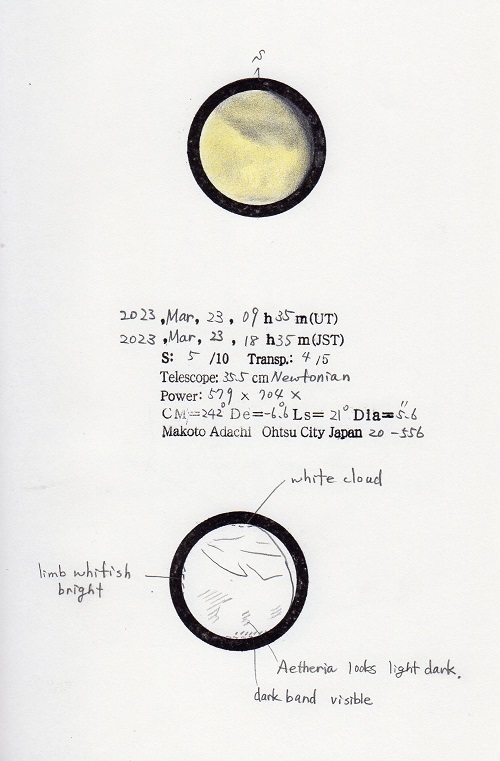 S
2023, Mar, 23, 09 h 35 m (UT)
2023, Mar, 23, 18 h 35 m (JST)
S: 5 /10 Transp.: 4/5
Telescope: 35.5 cm Newtonian
Power: 579 x 704 x
CM=242° De=-6.°6 Ls= 21° Dia=5."6
Makoto Adachi Ohtsu City Japan 20-556
white cloud
limb whitish
bright
Aetheria looks light dark.
dark band visible